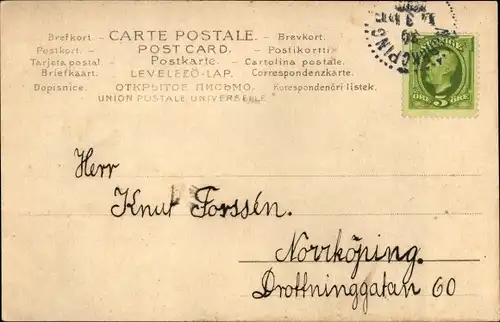 Brefkort. – CARTE POSTALE. – Brevkort.
Postkort. – POST CARD. – Postikortti
Tarjeta postal – Postkarte. – Cartolina postale.
Briefkaart. – LEVELEZŐ-LAP. – Correspondenzkarte.
Dopisnice. – ОТКРЫТОЕ ПИСЬМО. – Korespondenční listek.
UNION POSTALE UNIVERSELLE
5 ÖRE
Herr
Knut Forssén.
Norrköping.
Drottninggatan 60